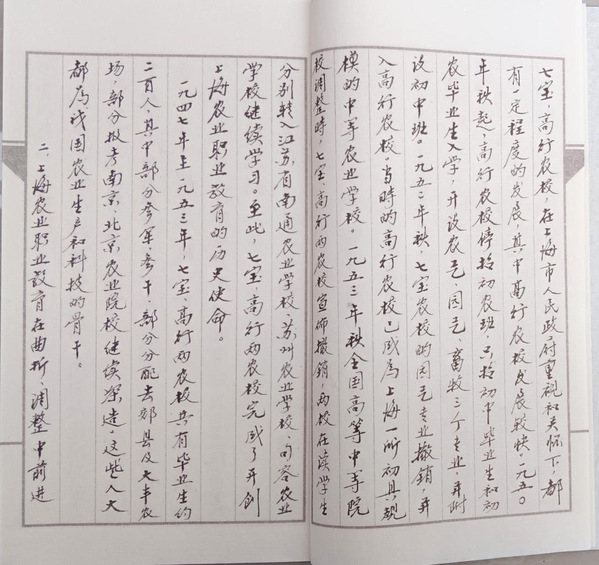 七宝、高行农校，在上海市人民政府重视和关怀下，都
有一定程度的发展，其中高行农校发展较快。一九五〇
年秋起，高行农校停招初农班，只招初中毕业生和初
农毕业生入学，开设农艺、园艺、畜牧三个专业，并附
设初中班。一九五二年秋，七宝农校的园艺专业撤销，并
入高行农校。当时的高行农校已成为上海一所初具规
模的中等农业学校。一九五三年秋全国高等中等院
校调整时，七宝、高行两农校宣佈撤销，两校在读学生
分别转入江苏省南通农业学校、苏州农业学校、句容农业
学校继续学习。至此，七宝、高行两农校完成了开创
上海农业职业教育的历史使命。
一九四七年至一九五三年，七宝、高行两农校共有毕业生约
二百人，其中部分参军、参干，部分分配去郊县及大丰农
场，部分报考南京、北京农业院校继续深造，这些人大
都为我国农业生产和科技的骨干。
二、上海农业职业教育在曲折、调整中前进